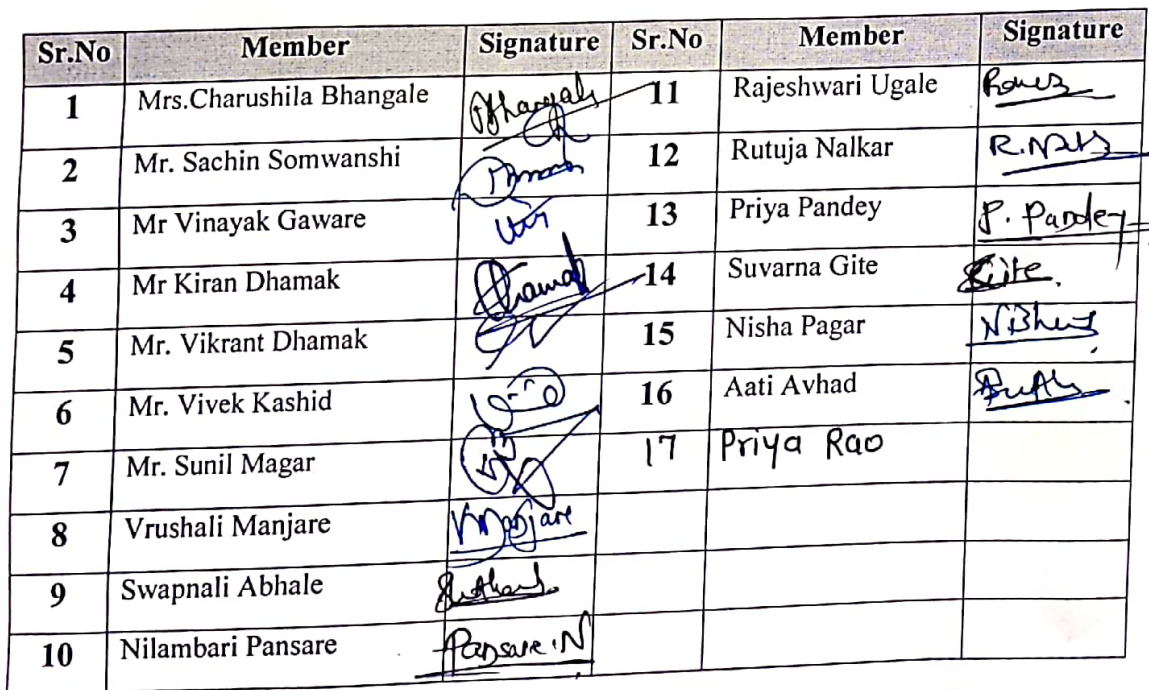 Sr.No Member Signature Sr.No Member Signature
1 Mrs.Charushila Bhangale 11 Rajeshwari Ugale
2 Mr. Sachin Somwanshi 12 Rutuja Nalkar
3 Mr Vinayak Gaware 13 Priya Pandey P. Pandey
4 Mr Kiran Dhamak 14 Suvarna Gite Gite.
5 Mr. Vikrant Dhamak 15 Nisha Pagar
6 Mr. Vivek Kashid 16 Aati Avhad
7 Mr. Sunil Magar 17 Priya Rao
8 Vrushali Manjare VManjare
9 Swapnali Abhale
10 Nilambari Pansare Pansare.N